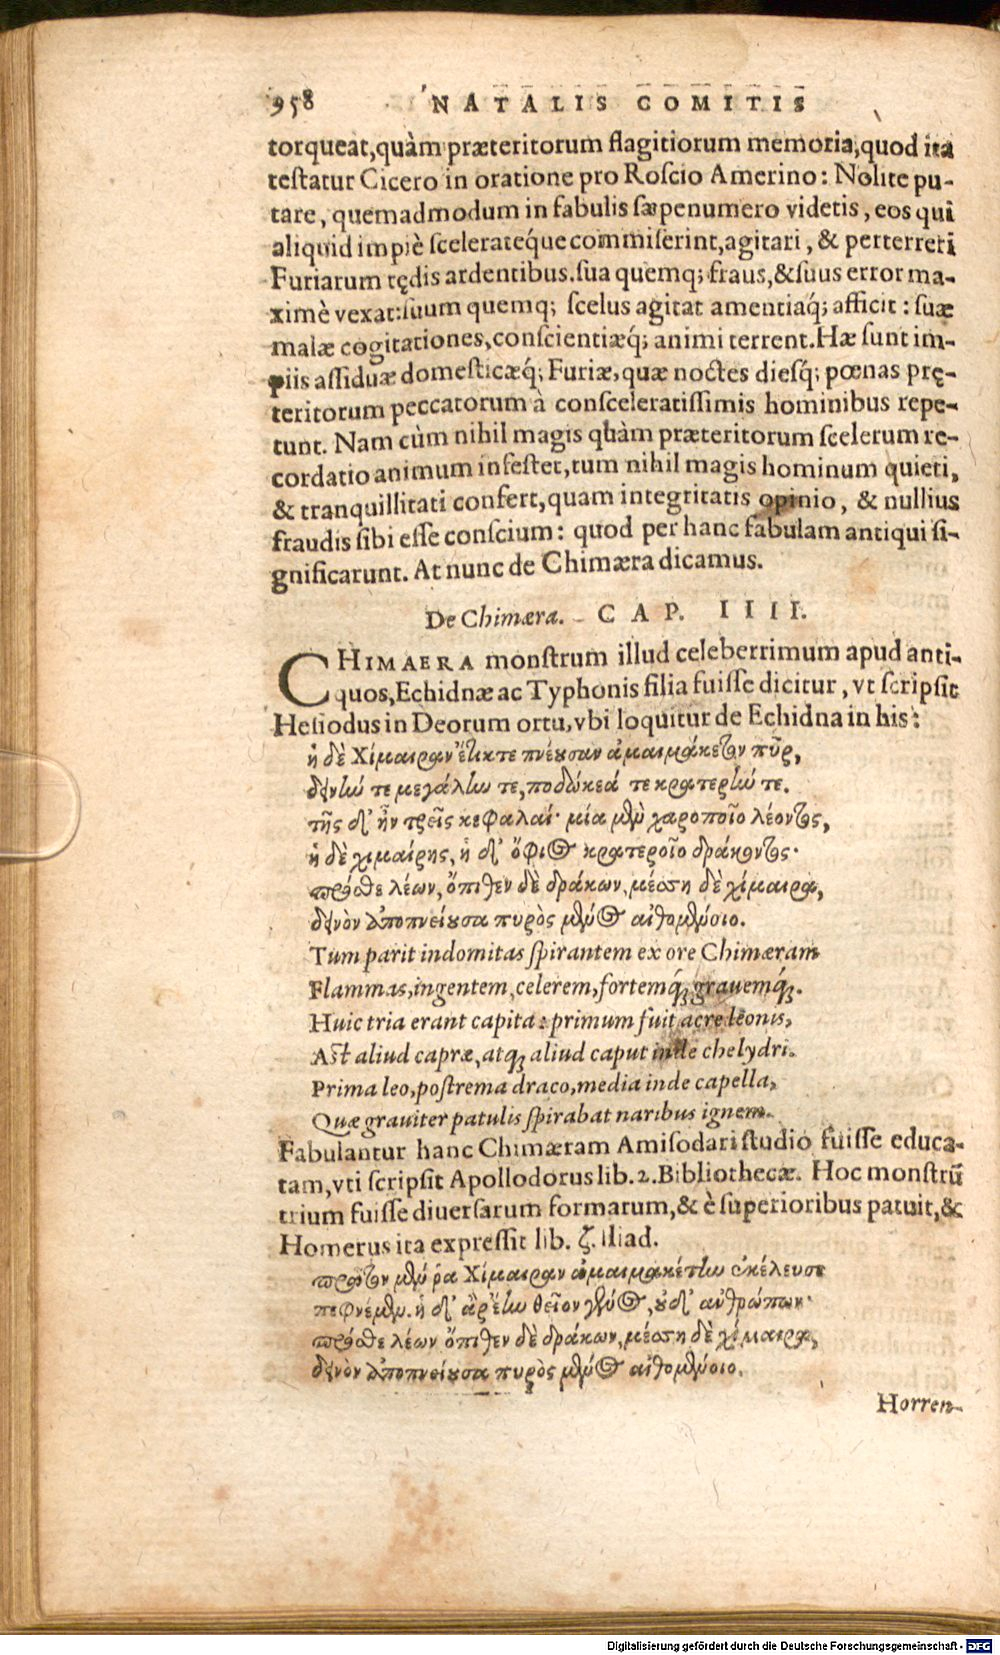 958 NATALIS COMITIS
torqueat,quàm præteritorum flagitiorum memoria,quod ita
testatur Cicero in oratione pro Roscio Amerino: Nolite pu-
tare, quemadmodum in fabulis sæpenumero videtis, eos qui
aliquid impiè scelerateque commiserint,agitari, & perterreri
Furiarum tędis ardentibus.sua quemq; fraus,&suus error ma-
ximè vexat:suum quemq; scelus agitat amentiaq́; afficit: suæ
malæ cogitationes,conscientiæq́; animi terrent.Hæ sunt im-
piis assiduæ domesticæq́; Furiæ,quæ noctes diesq́; pœnas prę-
teritorum peccatorum à consceleratissimis hominibus repe-
tunt. Nam cùm nihil magis quàm præteritorum scelerum re-
cordatio animum infestet,tum nihil magis hominum quieti,
& tranquillitati confert,quam integritatis opinio, & nullius
fraudis sibi esse conscium: quod per hanc fabulam antiqui si-
gnificarunt. At nunc de Chimæra dicamus.
De Chimæra. CAP. IIII.
CHIMAERA monstrum illud celeberrimum apud anti-
quos,Echidnæ ac Typhonis filia fuisse dicitur, vt scripsit
Hesiodus in Deorum ortu,vbi loquitur de Echidna in his:
ἡ δὲ Χίμαιραν ἔτικτε πνέουσαν ἀμαιμάκετον πῦρ,
δεινήν τε μεγάλην τε,ποδώκεά τε κρατερήν τε.
τῆς δ' ἦν τρεῖς κεφαλαί· μία μὲν χαροποῖο λέοντος,
ἡ δὲ χιμαίρης, ἡ δ' ὄφιος κρατεροῖο δράκοντος·
πρόσθε λέων, ὄπιθεν δὲ δράκων, μέσση δὲ χίμαιρα,
δεινὸν ἀποπνείουσα πυρὸς μένος αἰθομένοιο.
Tum parit indomitas spirantem ex ore Chimæram
Flammas,ingentem,celerem,fortemq́;, grauemq́;.
Huic tria erant capita: primum fuit acre leonis,
Ast aliud capræ,atq; aliud caput inde chelydri.
Prima leo,postrema draco,media inde capella,
Quæ grauiter patulis spirabat naribus ignem.
Fabulantur hanc Chimæram Amisodari studio fuisse educa-
tam,vti scripsit Apollodorus lib.2.Bibliothecæ. Hoc monstrū
trium fuisse diuersarum formarum,& è superioribus patuit,&
Homerus ita expressit lib. ζ. Iliad.
πρῶτον μέν ῥα Χίμαιραν ἀμαιμακέτην ἐκέλευσε
πεφνέμεν. ἡ δ' ἄρ' ἔην θεῖον γένος, οὐδ' ἀνθρώπων·
πρόσθε λέων ὄπιθεν δὲ δράκων, μέσση δὲ χίμαιρα,
δεινὸν ἀποπνείουσα πυρὸς μένος αἰθομένοιο.
Horren-
Digitalisierung gefördert durch die Deutsche Forschungsgemeinschaft - DFG